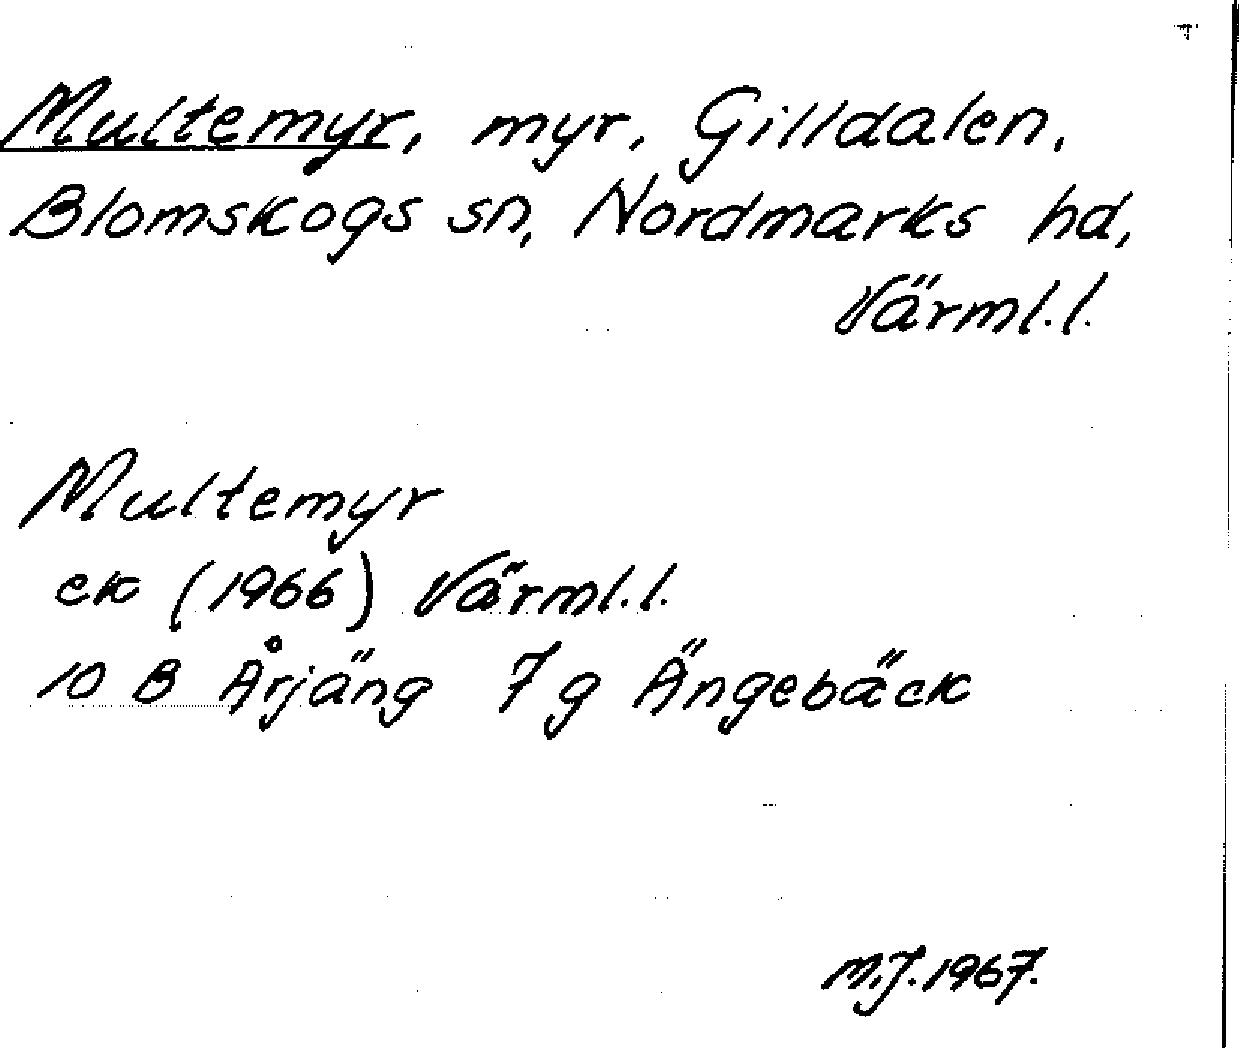 Multemyr, myr, Gilldalen,
Blomskogs sn, Nordmarks hd,
Värml.l.
Multemyr
ek (1966) Värml.l.
10 B Årjäng 7 g Ängebäck
M.J. 1967.